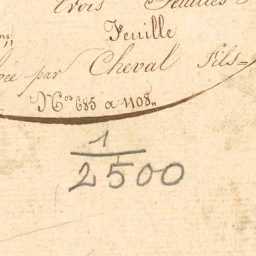 Trois Feuilles
Feuille
par Cheval Fils
N.os 685 a 1108.
1
2500